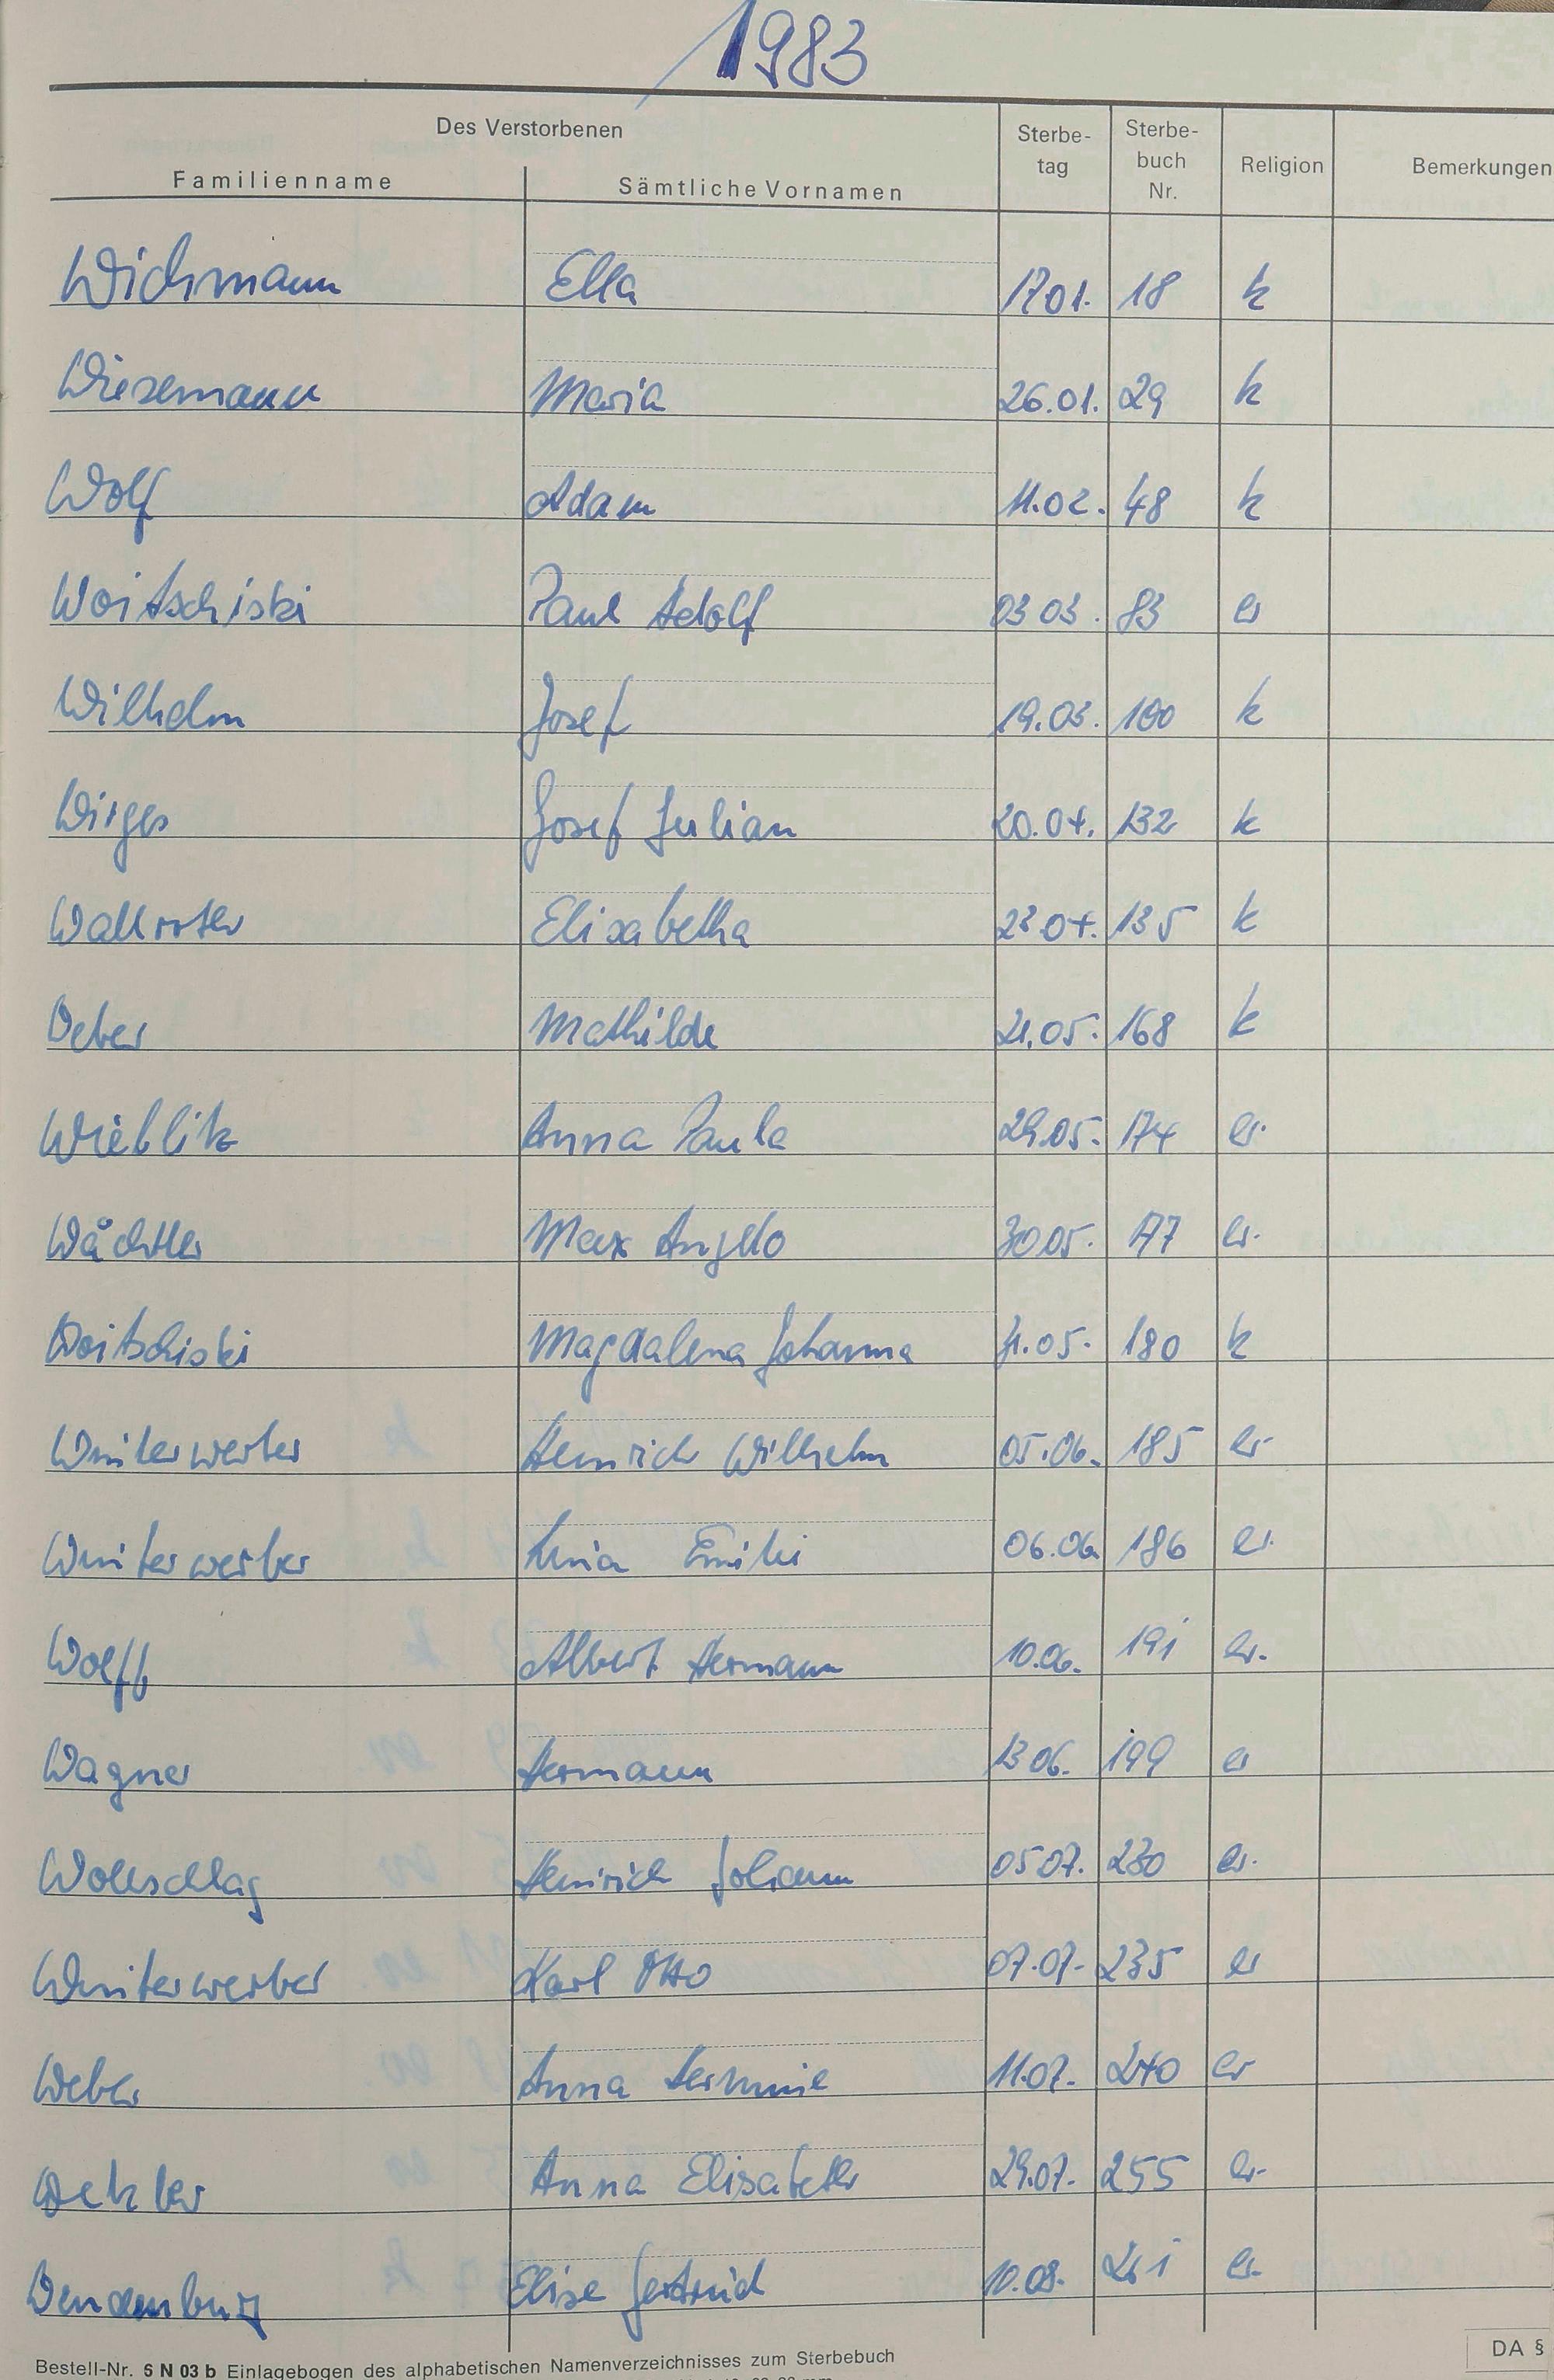 1983
Des Verstorbenen
Familienname Sämtliche Vornamen Sterbe-tag Sterbe-buch Nr. Religion Bemerkungen
Wichmann Ella 17.01. 18 k
Wiesemann Maria 26.01. 29 k
Wolf Adam 11.02. 48 k
Woitschiski Paul Adolf 03 03. 83 ev
Wilhelm Josef 19.03. 100 k
Wirges Josef Julian 20.04. 132 k
Wallroter Elisabetha 23 04. 135 k
Weber Mathilde 21.05. 168 k
Wieblitz Anna Paula 29.05. 174 ev.
Wächtler Max Angelo 30 05. 177 ev.
Woitschiski Magdalena Johanna 31.05. 180 k
Winterwerber Heinrich Wilhelm 05.06. 185 ev
Winterwerber Emilie 06.06 186 ev.
Wolff Albert Hermann 10.06. 191 ev.
Wagner Hermann 13 06. 199 ev
Wollschlag Heinrich Johann 05 07. 230 ev.
Winterwerber Karl Otto 07.07. 235 ev
Weber Anna Hermine 11.07. 240 ev
Anna Elisabeth 29.07. 255 ev.
Elise Gertrud 10.08. 261 ev.
Bestell-Nr. 6 N 03 b Einlagebogen des alphabetischen Namenverzeichnisses zum Sterbebuch
DA §